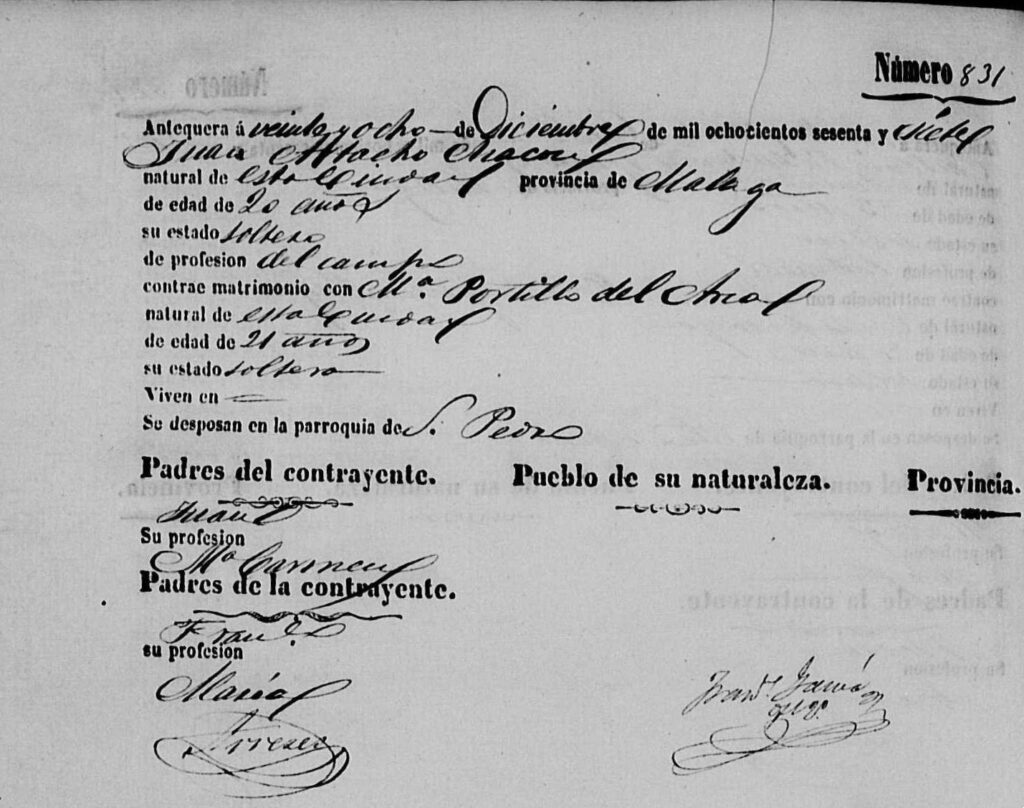 Número 831
Antequera á veinte y ocho de Diciembre de mil ochocientos sesenta y siete
Juan Artacho Chacon
natural de esta Ciudad provincia de Malaga
de edad de 20 años
su estado soltero
de profesion del campo
contrae matrimonio con Mª Portillo del Arca
natural de esta Ciudad
de edad de 21 años
su estado soltera
Viven en —
Se desposan en la parroquia de S. Pedro
Padres del contrayente. Pueblo de su naturaleza. Provincia.
Juan
Su profesion
Mª Carmen
Padres de la contrayente.
Franco
su profesion
Maria